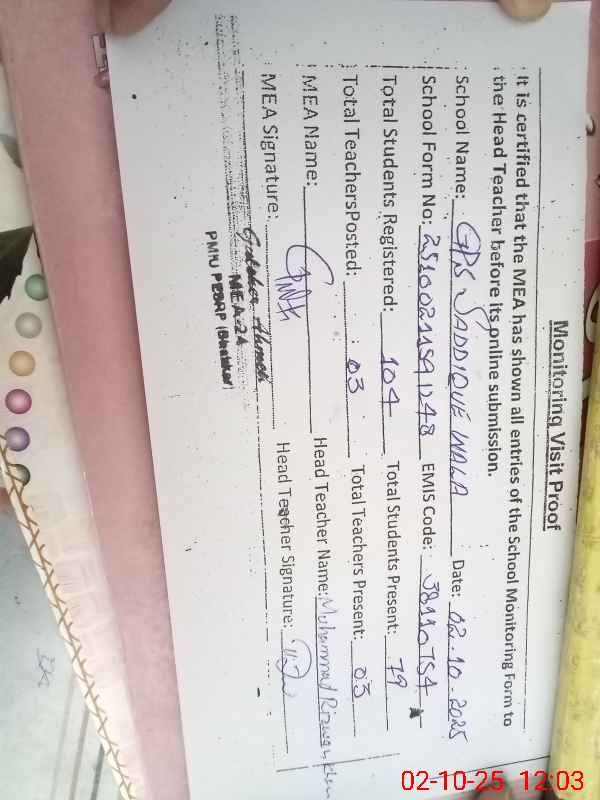 Monitoring Visit Proof
It is certified that the MEA has shown all entries of the School Monitoring Form to
the Head Teacher before its online submission.
School Name: GPS SADDIQUE WALA Date: 02.10.2025
School Form No: EMIS Code: 38110754
Total Students Registered: 104 Total Students Present: 79
Total TeachersPosted: 03 Total Teachers Present: 03
MEA Name: Head Teacher Name: Muhammad Rizwan Khan
MEA Signature: Head Teacher Signature:
Ahmed
MEA-24
PMIU PESRP (Bhakkar)
02-10-25 12:03